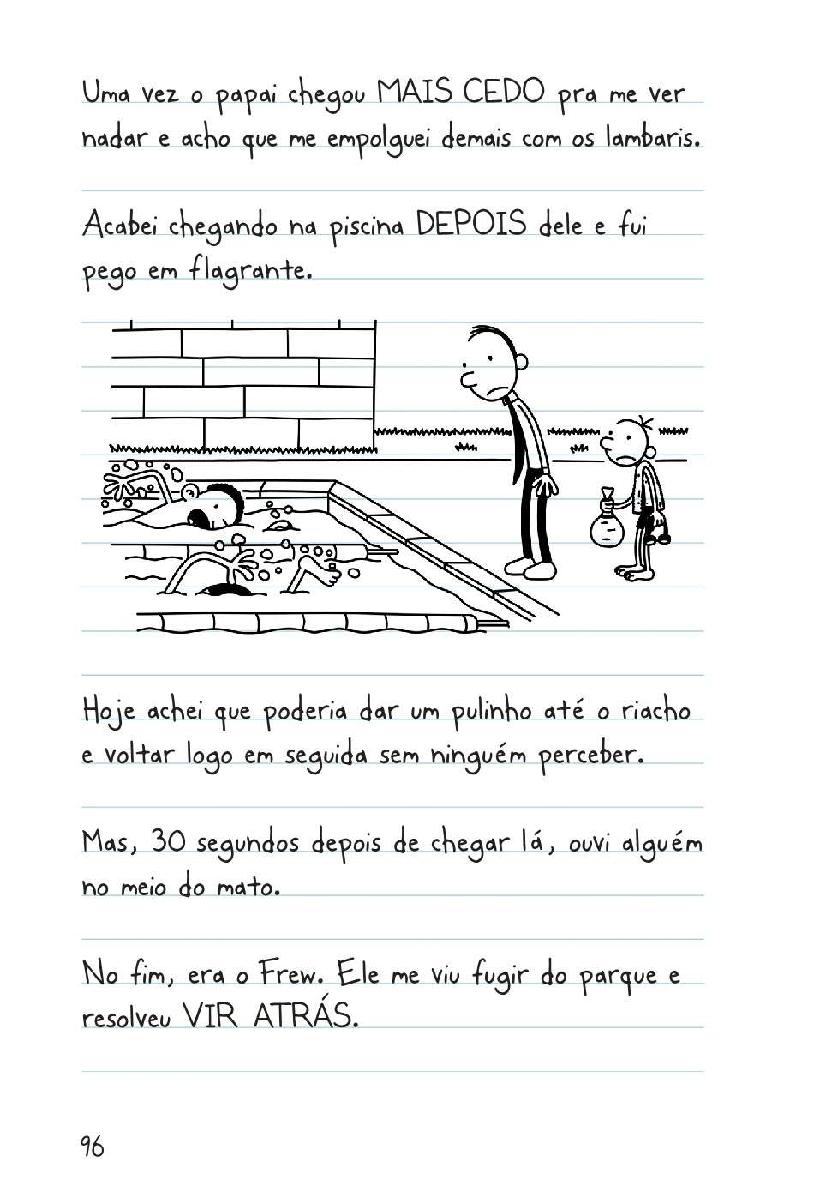 Uma vez o papai chegou MAIS CEDO pra me ver
nadar e acho que me empolguei demais com os lambaris.
Acabei chegando na piscina DEPOIS dele e fui
pego em flagrante.
Hoje achei que poderia dar um pulinho até o riacho
e voltar logo em seguida sem ninguém perceber.
Mas, 30 segundos depois de chegar lá, ouvi alguém
no meio do mato.
No fim, era o Frew. Ele me viu fugir do parque e
resolveu VIR ATRÁS.
96